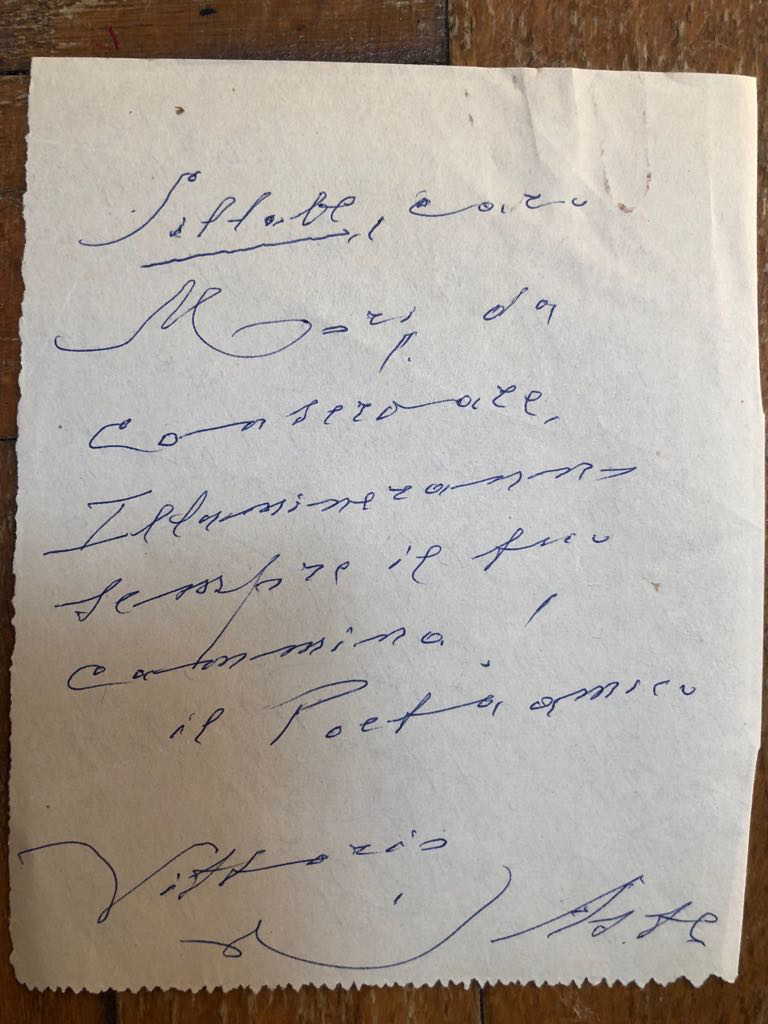 Sillabe, caro
da
Conservare,
Illumineranno
sempre il tuo
cammino!
il Poeta amico
Vittorio